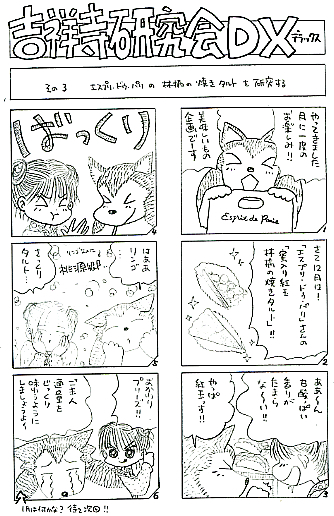 吉祥寺研究会DX
デラックス
その3 エスプリ・ドゥ・パリの林檎の焼きタルトを研究する
やってきました
月に一度の
お楽しみ!!
美味しいもの
企画でーす
Esprit de Paris
1
さて12月は!
「エスプリ・ドゥ・パリ」さんの
「蜜入り紅玉
林檎の焼きタルト」!!
2
ああ〜ん
甘酸っぱい
香りが
たまら
な〜い!!
やっぱ
紅玉っす!!
3
ばっくり
4
はああ
リンゴ
さっくり
タルト!
5
おかわり
プリーズ!!
ご主人
適量を
じっくり
味わうように
しましょうよ
6
1月は何かな? 待て次回!!